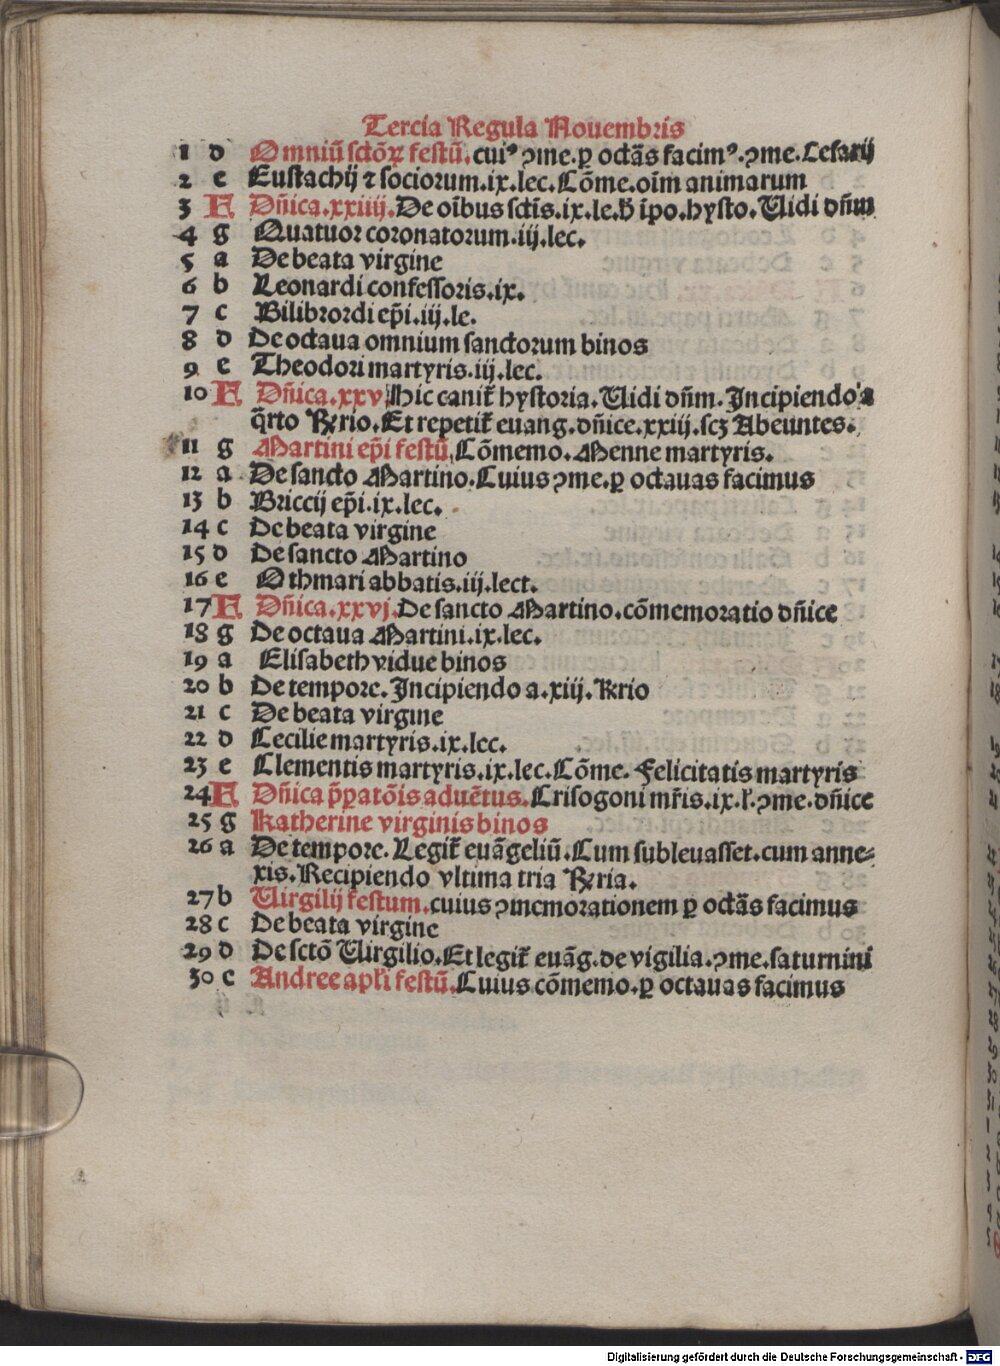 Tercia Regula Nouembris
1 d Omniū sctōꝝ festū. cuiꝰ ꝯme. ꝑ octās facimꝰ. ꝯme. Cesarij
2 e Eustachij ⁊ sociorum. ix. lec. Cōme. oīm animarum
3 F Dn̄ica. xxiiij. De oībus sctīs. ix. le. ꝟ īpo. hysto. Vidi dn̄m
4 g Quatuor coronatorum. iij. lec.
5 a De beata virgine
6 b Leonardi confessoris. ix.
7 c Bilibrordi ep̄i. iij. le.
8 d De octaua omnium sanctorum binos
9 e Theodori martyris. iij. lec.
10 F Dn̄ica. xxv. Hic canit᷑ hystoria. Vidi dn̄m. Incipiendo a
q̄rto R̄rio. Et repetit᷑ euang. dn̄ice. xxiij. scꝫ Abeuntes.
11 g Martini ep̄i festū. Cōmemo. Menne martyris.
12 a De sancto Martino. Cuius ꝯme. ꝑ octauas facimus
13 b Briccij ep̄i. ix. lec.
14 c De beata virgine
15 d De sancto Martino
16 e Othmari abbatis. iij. lect.
17 F Dn̄ica. xxvj. De sancto Martino. cōmemoratio dn̄ice
18 g De octaua Martini. ix. lec.
19 a Elisabeth vidue binos
20 b De tempore. Incipiendo a. xiij. R̄rio
21 c De beata virgine
22 d Cecilie martyris. ix. lec.
23 e Clementis martyris. ix. lec. Cōme. Felicitatis martyris
24 F Dn̄ica p̄ꝑatōis aduētus. Crisogoni mr̄is. ix. l. ꝯme. dn̄ice
25 g Katherine virginis binos
26 a De tempore. Legit᷑ euāgeliū. Cum subleuasset. cum anne⸗
xis. Recipiendo vltima tria R̄ria.
27 b Virgilij festum. cuius ꝯmemorationem ꝑ octās facimus
28 c De beata virgine
29 d De sctō Virgilio. Et legit᷑ euāg. de vigilia. ꝯme. saturnini
30 e Andree apl̄i festū. Cuius cōmemo. ꝑ octauas facimus
Digitalisierung gefördert durch die Deutsche Forschungsgemeinschaft - DFG